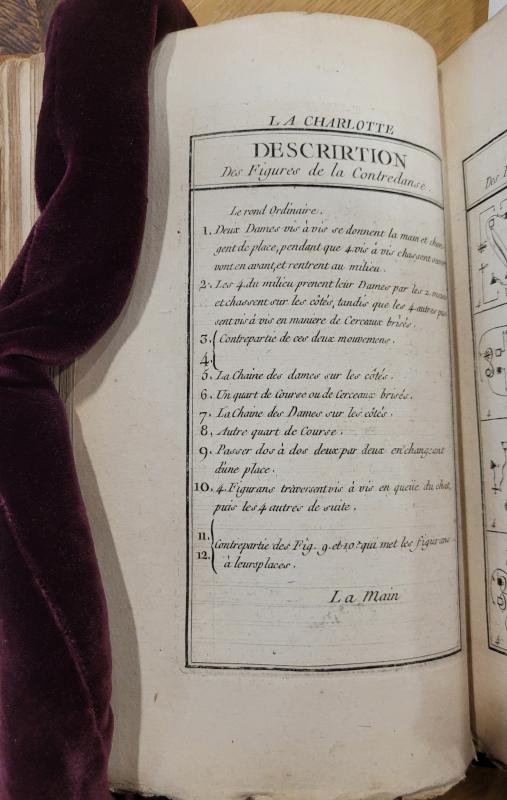 LA CHARLOTTE
DESCRIRTION
Des Figures de la Contredanse.
Le rond Ordinaire.
1. Deux Dames vis à vis se donnent la main et chan-
gent de place, pendant que 4. vis à vis chassent
vont en avant, et rentrent au milieu.
2. Les 4. du milieu prenent leur Dames par les 2. mains
et chassent sur les côtés, tandis que les 4 autres
sent vis à vis en maniere de Cerceaux brisés.
3. Contrepartie de ces deux mouwemens.
4.
5. La Chaine des dames sur les côtés.
6. Un quart de Course ou de Cerceaux brisés.
7. La Chaine des Dames sur les côtés.
8. Autre quart de Course.
9. Passer dos à dos deux par deux en changeant
d'une place.
10. 4. Figurans traversent vis à vis en queüe du chat,
puis les 4 autres de suite.
11.
Contrepartie des Fig. 9. et 10.e qui met les figurans
12.
à leurs places.
La Main
Des